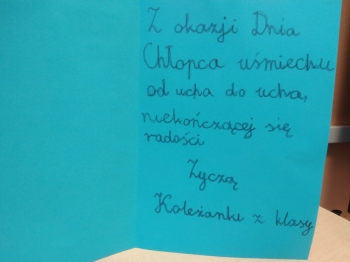 Z okazji Dnia
Chłopca uśmiechu
od ucha do ucha,
niekończącej się
radości
Życzą
Koleżanki z klasy